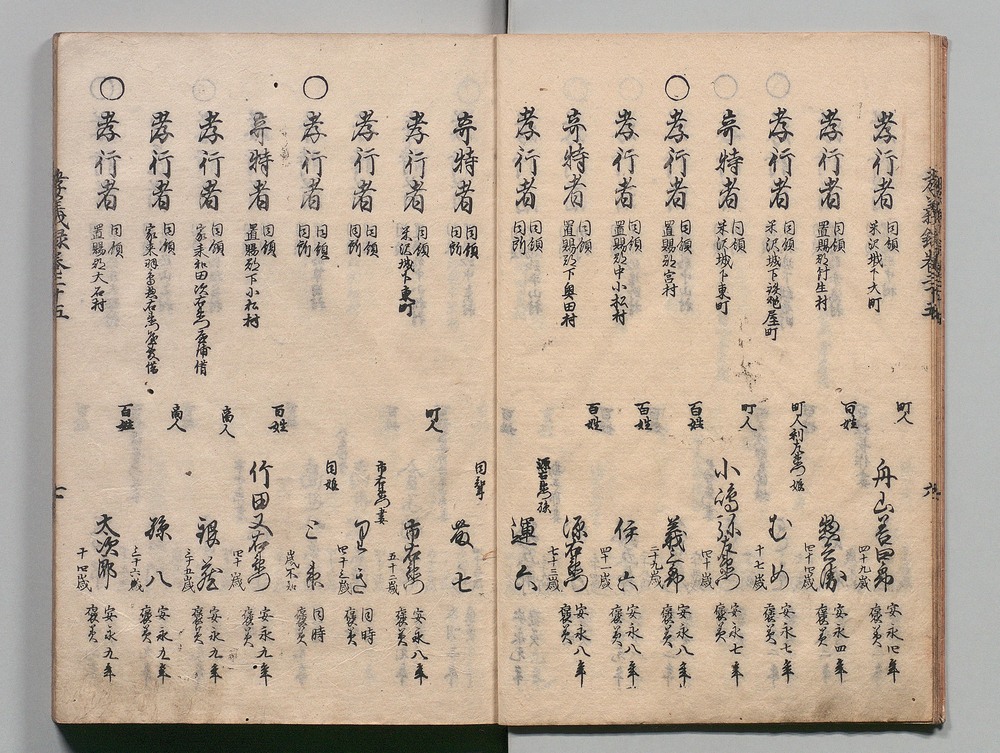 孝行者 同領 米沢城下大町 町人 舟山善四郎 四十九歳 安永四年 褒美
孝行者 同領 置賜郡竹生村 百姓 四十四歳 安永四年 褒美
○孝行者 同領 米沢城下 屋町 町人利左衛門娘 むめ 十七歳 安永七年 褒美
奇特者 同領 米沢城下東町 町人 小嶋弥左衛門 四十歳 安永七年 褒美
○孝行者 同領 置賜郡宮村 百姓 義三郎 三十九歳 安永八年 褒美
孝行者 同領 置賜郡中小松村 百姓 伊六 四十一歳 安永八年 褒美
奇特者 同領 置賜郡下奥田村 百姓 源右衛門 七十三歳 安永八年 褒美
孝行者 同領 同所 源右衛門孫 運六
奇特者 同領 同所 同聟 七
孝行者 同領 米沢城下東町 町人 市右衛門 五十三歳 安永八年 褒美
孝行者 同領 同所 市右衛門妻 四十三歳 同時 褒美
○孝行者 同領 同所 同娘 歳不知 同時 褒美
奇特者 同領 置賜郡下小松村 百姓 竹田又右衛門 四十歳 安永九年 褒美
孝行者 同領 家来和田次右衛門店借 商人 銀蔵 三十五歳 安永九年 褒美
孝行者 同領 商人 孫八 三十六歳 安永九年 褒美
○孝行者 同領 置賜郡大石村 百姓 太次郎 十四歳 安永九年 褒美
孝義録巻三十五
七